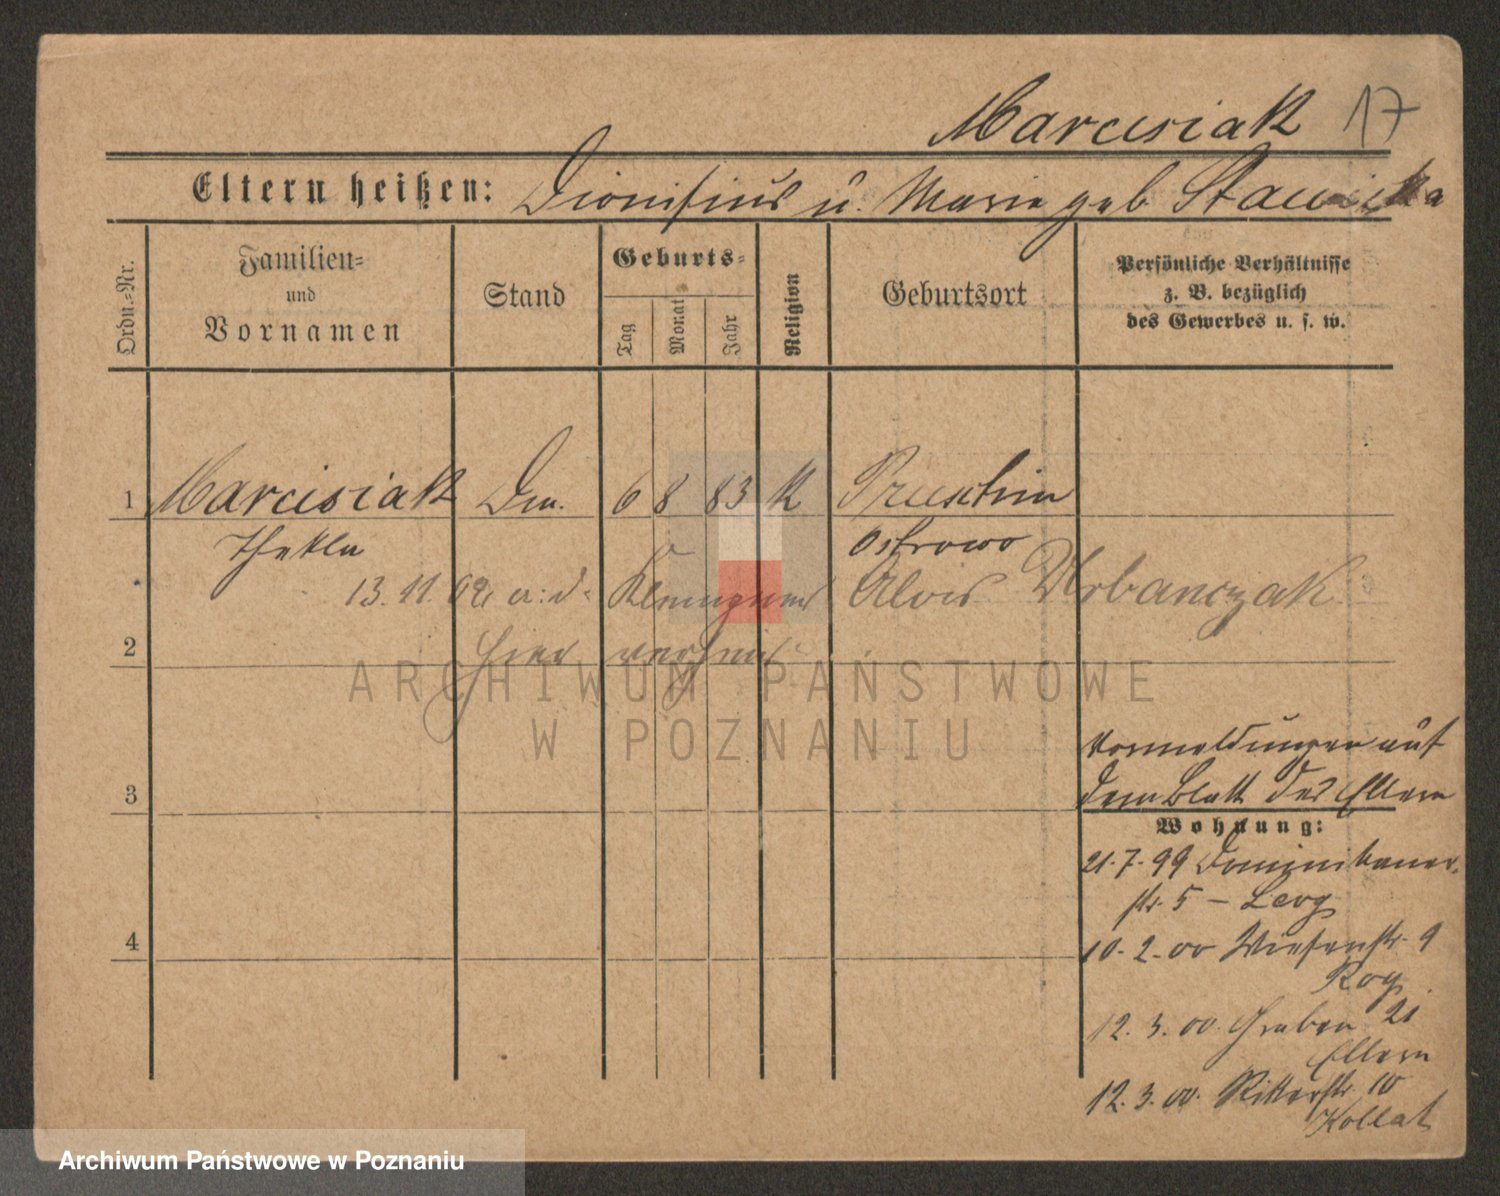 Marcisiak 17
Eltern heißen: Dionisius u. Marie geb Stawicka
Ordn.=Nr.
Familien=
und
Vornamen
Stand
Geburts=
Tag
Monat
Jahr
Religion
Geburtsort
Persönliche Verhältnisse
z. B. bezüglich
des Gewerbes u. s. w.
1 Marcisiak Dm. 6 8 83 K
Thekla Ostrowo
13. 11. 02 a. d. Klempner Alois Urbanczak
2 hier verh
3
Vormeldungen auf
dem Blatt der Eltern
Wohnung:
21.7.99 Dominikaner-
str. 5 –
4
10.2.00 Wiesenstr. 9
12.3.00 Graben 21
Eltern
12.3.00 Ritterstr. 10
Kollat
ARCHIWUM PAŃSTWOWE
W POZNANIU
Archiwum Państwowe w Poznaniu